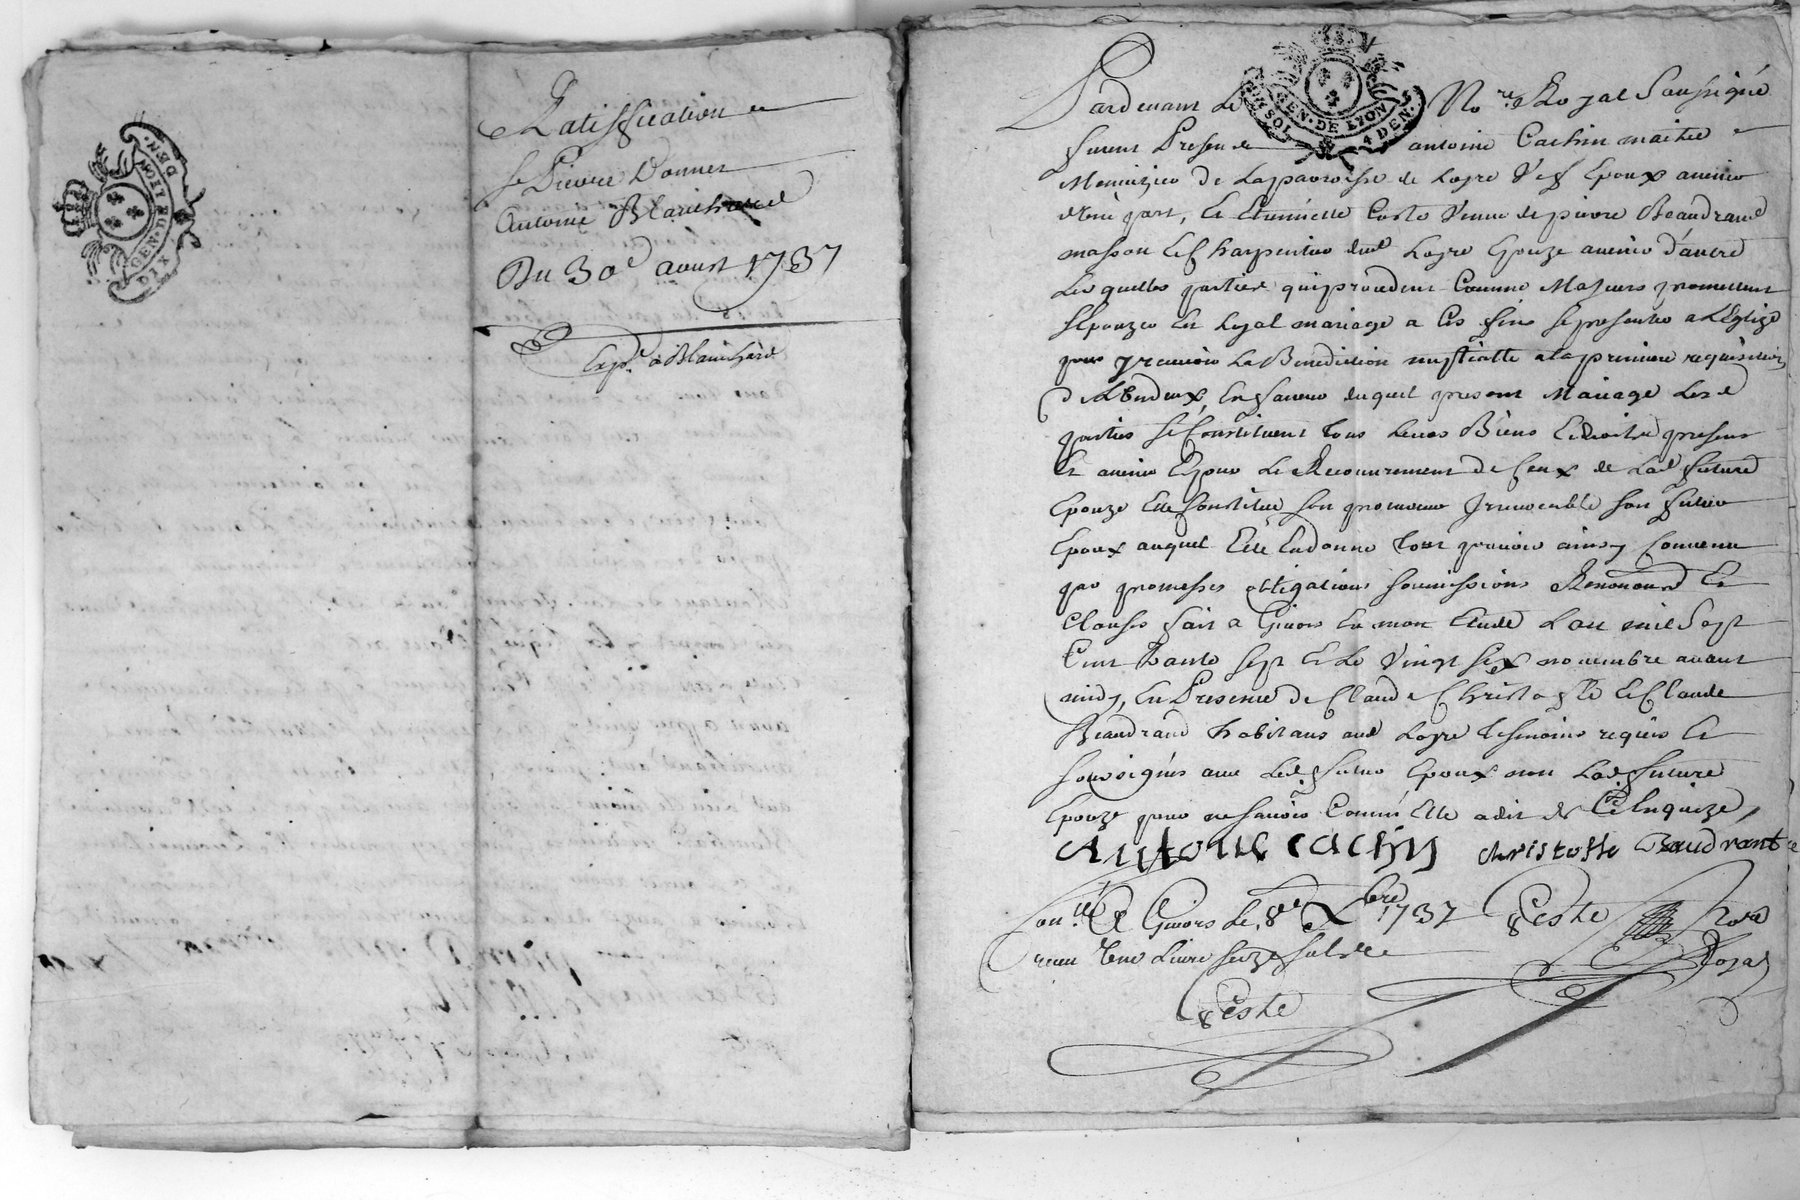 GEN. DE LYON
DIX DEN.
Ratiffication
Sr Pierre Donnet
Antoine Blanchard
Du 30e aoust 1737
Expe. a Blanchard
GEN. DE LYON
SOL 4 DEN.
Pardevant Le Nore Royal Soussigné
furent Presens antoine Cachin maitre
Menuizier de Laparoisse de Loyre Epoux avenir
d'une part, Et Veuve de pierre Beaudrand
masson Et Charpentier dud Loyre Epouze avenir d'autre
Lesquelles parties qui procedent Comme Majeurs promettent
sEpouzer En Loyal mariage a Ces fins se presenter a LEglize
pour y recevoir La Benediction nuptialle ala premiere requisition
de LEndeux, En faveur duquel present Mariage Lesd
parties se Constituent Tous Leurs Biens Et droits presens
Et avenir Et pour Le Recouvrement de Ceux de Lad future
Epouze Elle Constitue son procureur Irrevocable son futur
Epoux auquel Elle Endonne tout pouvoir ainsy Convenu
par promesses obligations soumissions Renonond Et
Clauses fait a Givors En mon Etude Lan mil Sept
Cent Trante Sept Et Le Vingt Six novembre avant
midy, En Presence de Claude Christofle Et Claude
Beaudrand habitans aud Loyre tesmoins requis Et
soussignés avec Led. futur Epoux non Lad. future
Epouze pour ne savoir Comme Elle a dit de Ce Enquize,
Antoine cachin christofle Baudrant
Conllé A Givors Le 8e Xbre 1737
receu Une Livre seize sols